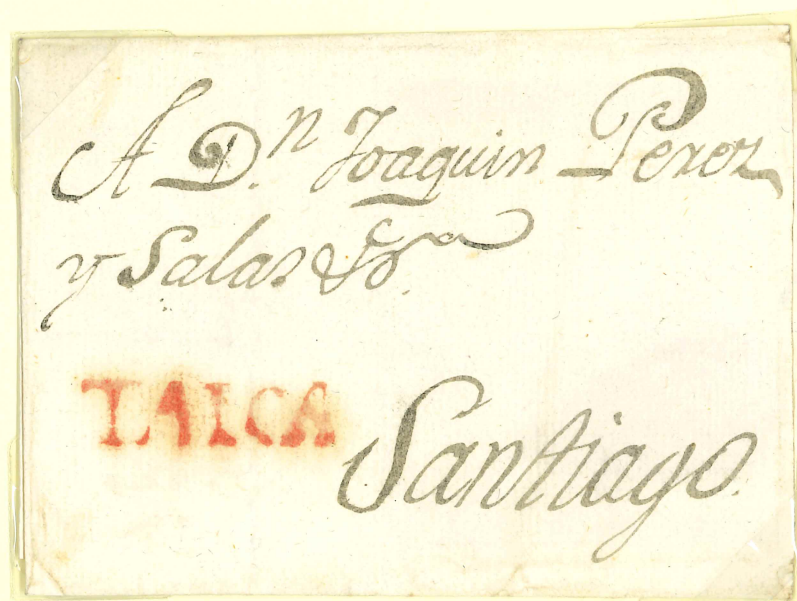 A D.n Joaquin Perez
y Salas &a
TALCA
Santiago.